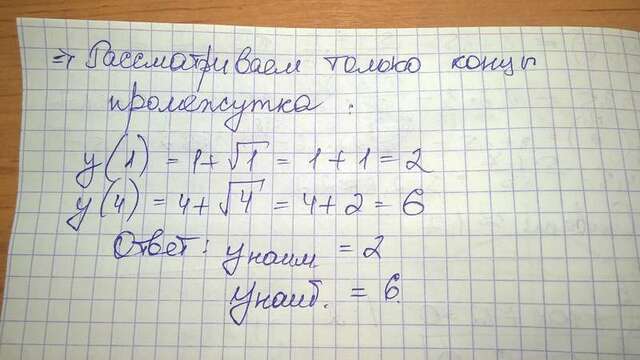 ⇒ Рассматриваем только концы
промежутка :
y(1) = 1+√1 = 1+1=2
y(4) = 4+√4 = 4+2=6
Ответ: yнаим. = 2
yнаиб. = 6.